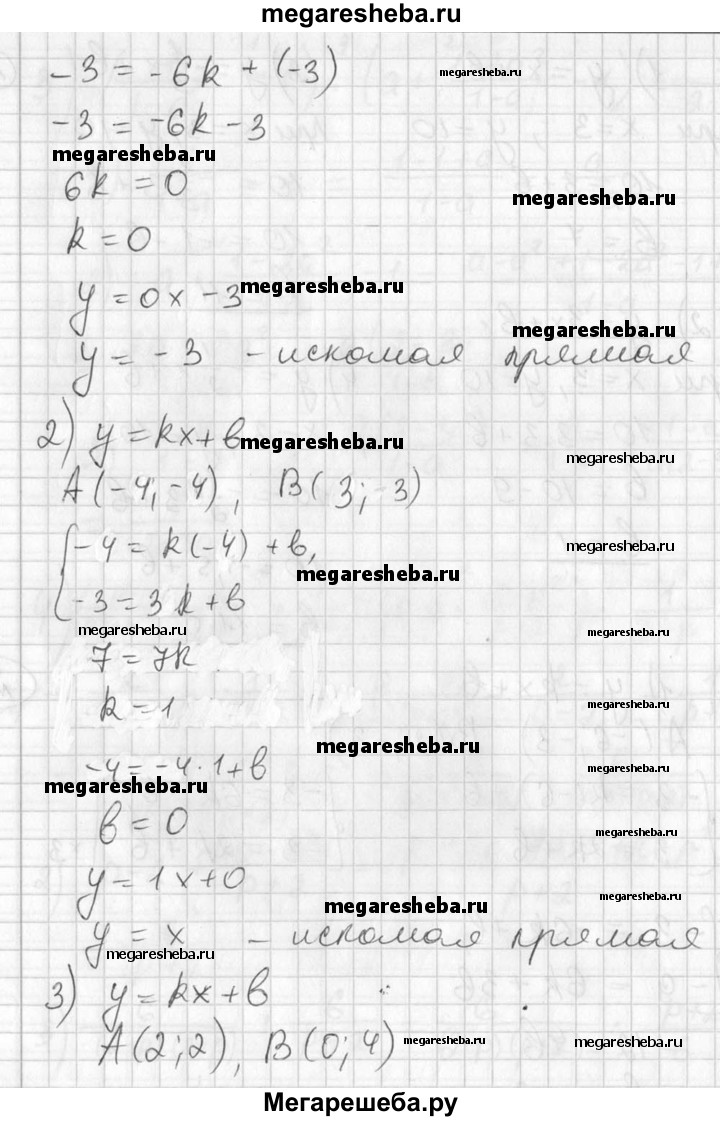 megaresheba.ru
-3 = -6k + (-3) megaresheba.ru
-3 = -6k - 3
megaresheba.ru
6k = 0 megaresheba.ru
k = 0
y = 0x - 3 megaresheba.ru
megaresheba.ru
y = -3 - искомая прямая
2) y = kx + b megaresheba.ru
megaresheba.ru
A(-4; -4), B(3; -3)
{-4 = k(-4) + b, megaresheba.ru
megaresheba.ru
-3 = 3k + b
megaresheba.ru megaresheba.ru
7 = 7k
k = 1 megaresheba.ru
megaresheba.ru
-4 = -4·1 + b megaresheba.ru
megaresheba.ru
b = 0 megaresheba.ru
y = 1x + 0 megaresheba.ru
megaresheba.ru
y = x - искомая прямая
megaresheba.ru
3) y = kx + b
A(2; 2), B(0; 4) megaresheba.ru megaresheba.ru
Мегарешеба.ру